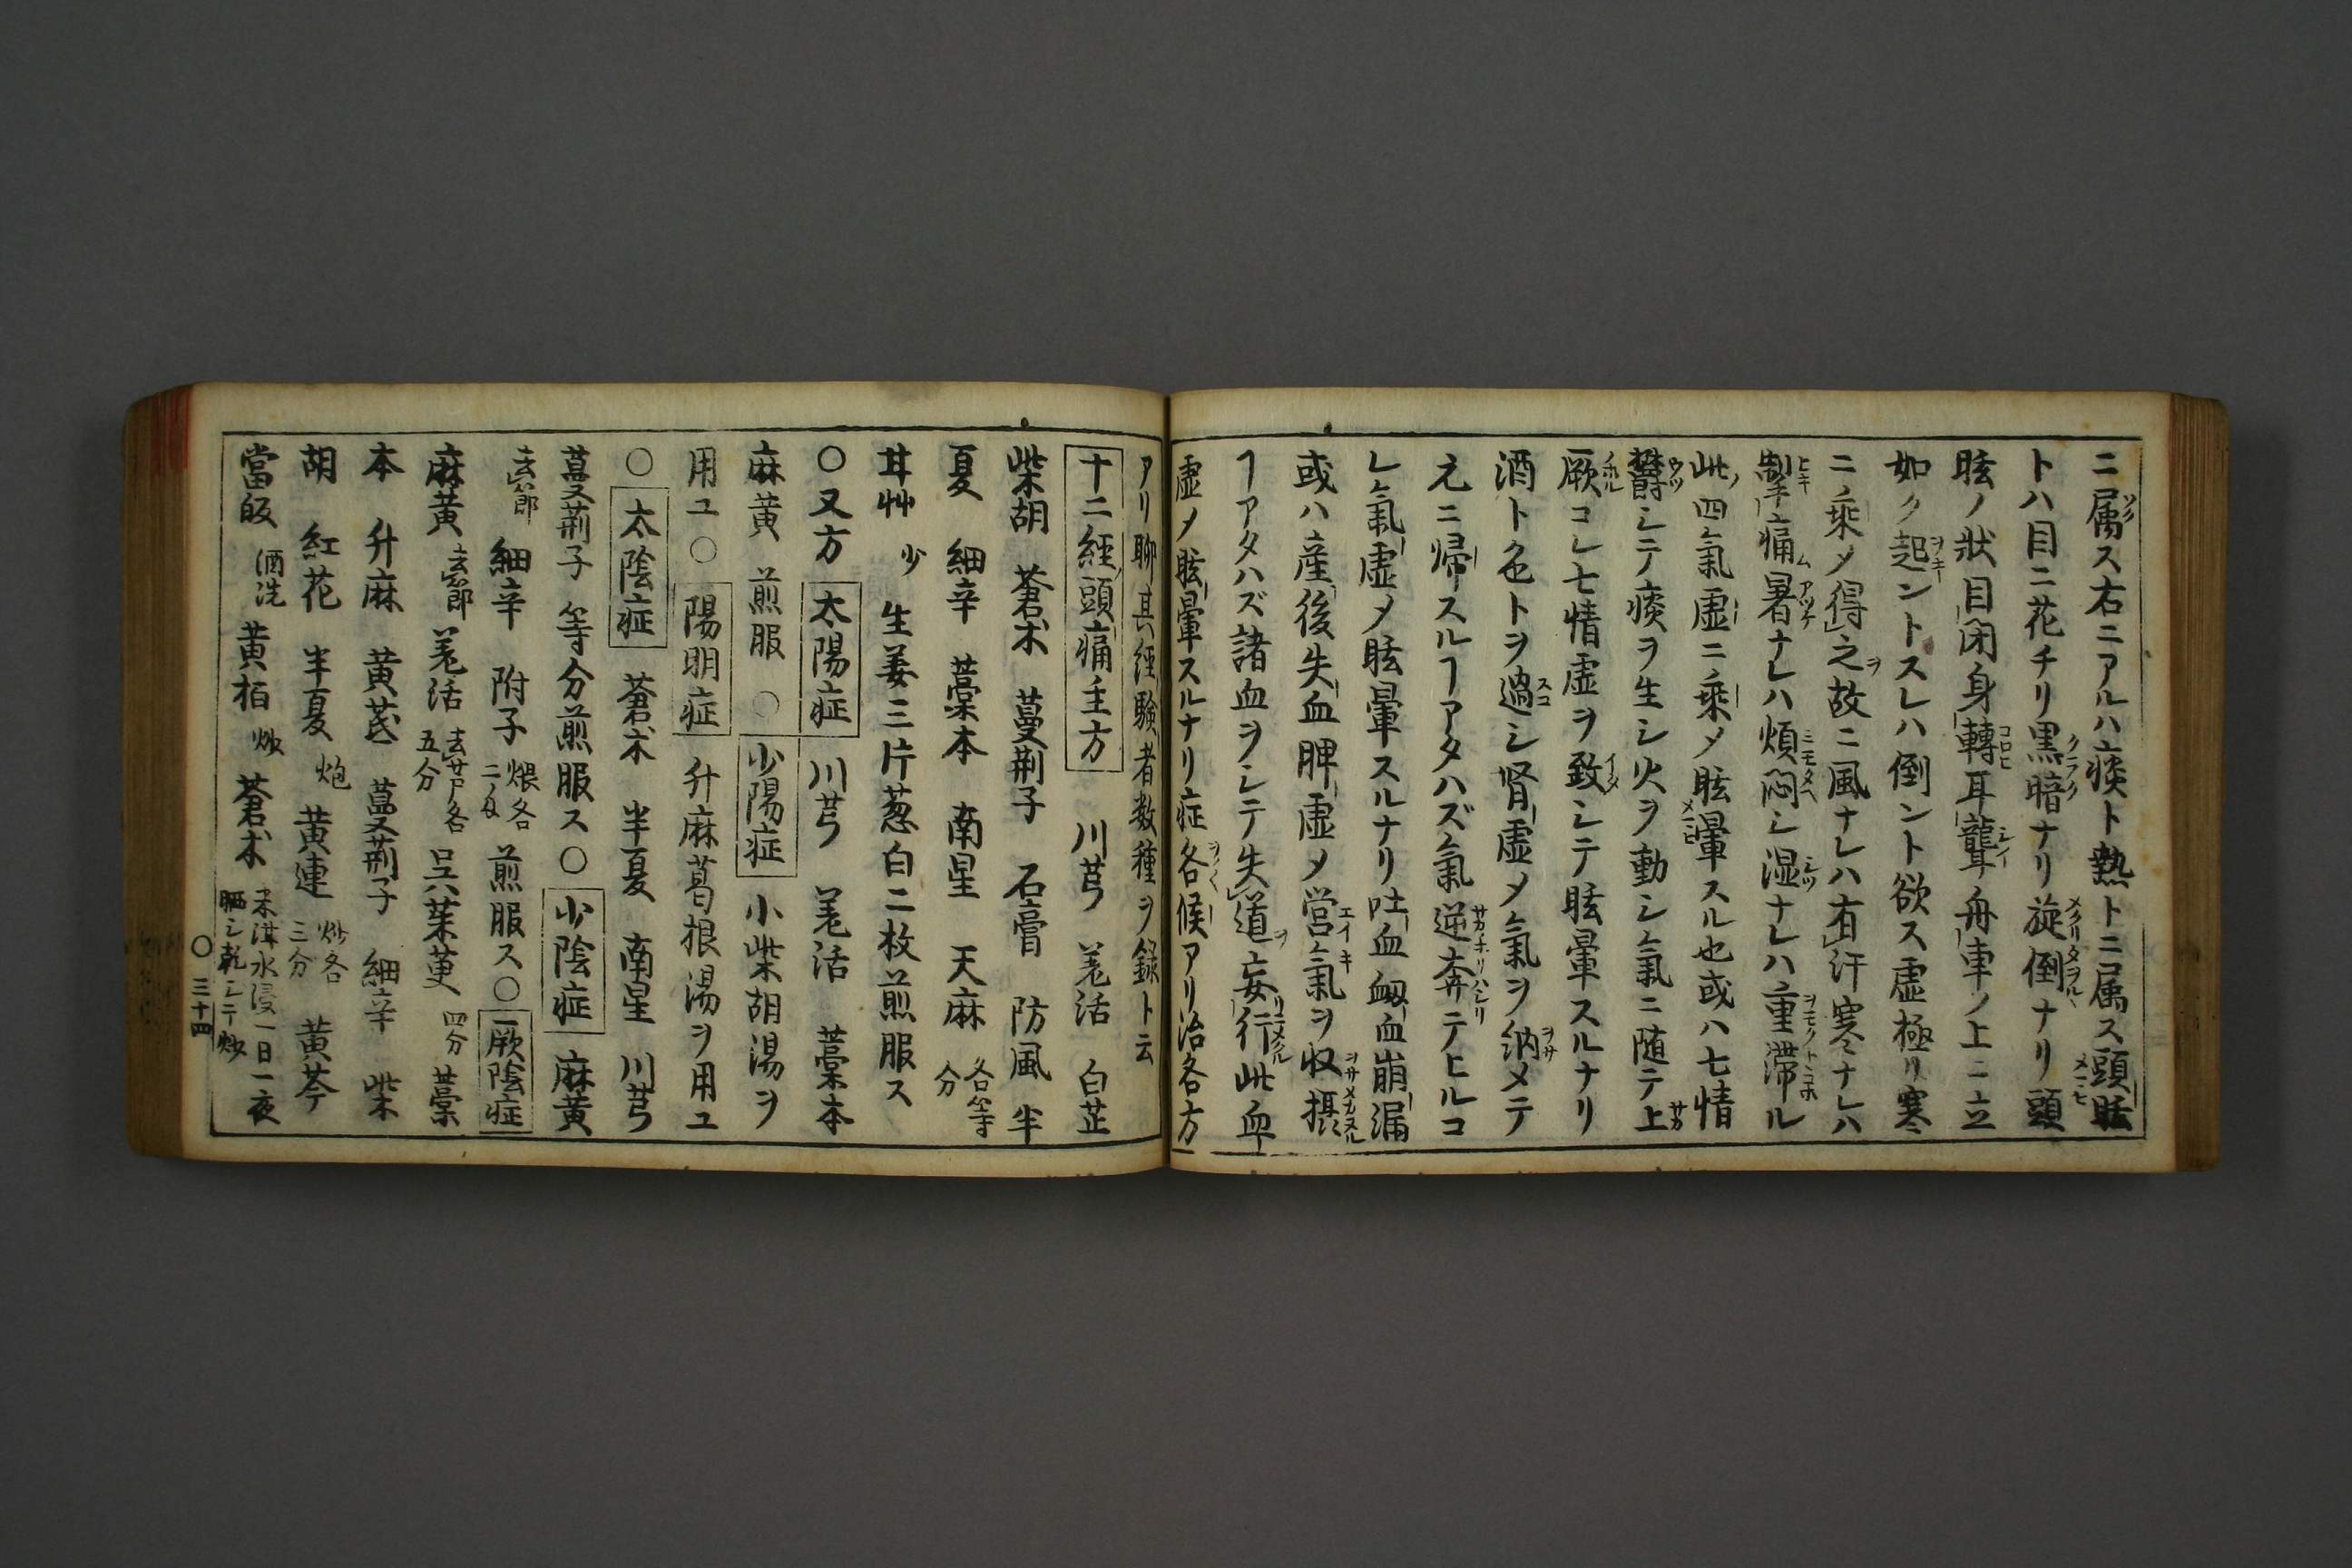 ニ属ス右ニアルハ痰ト熱トニ属ス頭眩
トハ目ニ花チリ黒暗ナリ旋倒ナリ頭
眩ノ狀目閉身轉耳聾舟車ノ上ニ立
如ク起ントスレハ倒ント欲ス虚極リ寒
ニ乘メ得之故ニ風ナレハ有汗寒ナレハ
掣痛暑ナレハ煩悶シ湿ナレハ重滞ル
此四氣虚ニ乘メ眩暈スル也或ハ七情
欝シテ痰ヲ生シ火ヲ動シ氣ニ随テ上
厥コレ七情虚ヲ致シテ眩暈スルナリ
酒ト色トヲ過シ腎虚メ氣ヲ納メテ
元ニ帰スルヿアタハズ氣逆奔テヒルコ
レ氣虚メ眩暈スルナリ吐血衂血崩漏
或ハ産後失血脾虚メ営氣ヲ収摂
ヿアタハズ諸血ヲシテ失道妄行此血
虚メ眩暈スルナリ症各候アリ治各方
アリ聊其経験者数種ヲ録ト云
十二經頭痛主方 川芎 羌活 白芷
柴胡 蒼朮 蔓荊子 石膏 防風 半
夏 細辛 藁本 南星 天麻 各等分
甘艸 少 生姜三片葱白二枚煎服ス
〇又方 太陽症 川芎 羌活 藁本
麻黄 煎服 〇 少陽症 小柴胡湯ヲ
用ユ〇 陽明症 升麻葛根湯ヲ用ユ
〇 太陰症 蒼朮 半夏 南星 川芎
蔓荊子 等分煎服ス〇 少陰症 麻黄
去節 細辛 附子 煨各二匁 煎服ス〇 厥陰症
麻黄 去節 羌活 去芦各五分 呉茱萸 四分 藁
本 升麻 黄芪 蔓荊子 細辛 柴
胡 紅花 半夏 炮 黄連 炒各三分 黄芩
當皈 酒洗 黄栢 炒 蒼朮 米泔水浸一日一夜晒シ乾シテ炒
〇三十四